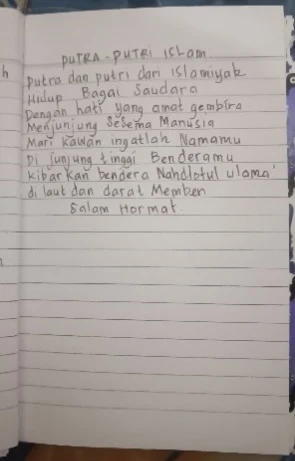 PUTRA-PUTRI ISLam
Putra dan putri dari Islamiyak
Hidup Bagai Saudara
Dengan hati yang amat gembira
Menjunjung Sesema Manusia
Mari kawan ingatlah Namamu
Di junjung tinggi Benderamu
Kibarkan bendera Nahdlotul ulama'
di laut dan darat Memberi
Salam Hormat.
h